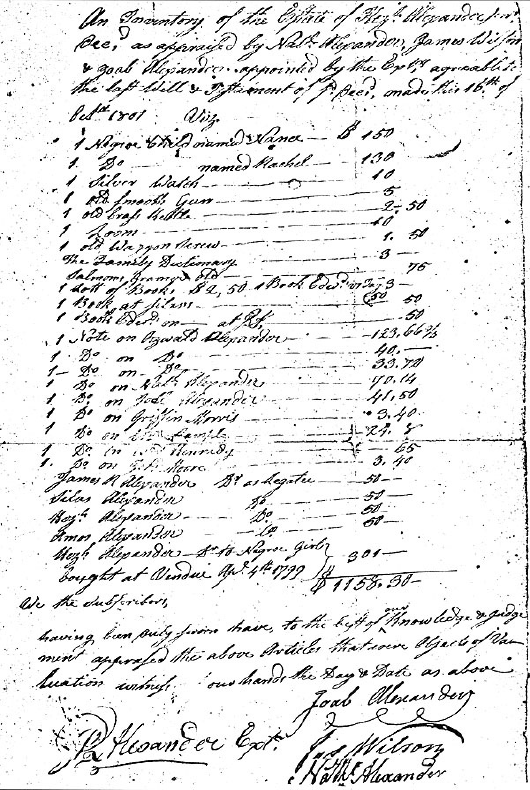 An Inventory of the Estate of Hezh. Alexander senr.
Decd. as appraised by Nathl. Alexander, James Wilson
& Joab Alexander appointed by the Exrs. agreeable to
the last Will & Testament of sd. Decd, made this 16th of
Octbr. 1801 Viz
1 Negroe Child named Nance $ 150
1 Do named Rachel 130
1 Silver Watch 10
1 old Smooth Gun 5
1 old Brass Kettle 2-50
1 Loom 10
1 old Waggon Screw 1.50
The Family Dictionary 3
Salmons Gramer old 75
1 Lott of Books $2,50 1 Book
1 Book at 50
1 Book on at 50
1 Note on Oswald Alexander 123.66⅔
1 Do on Do 40.
1 Do on Do 33.70
1 Do on Nathl. Alexander 70.14
1 Do on Alexander 41,50
1 Do on Griffin Morris 3.40
1 Do on
1 Do on Kennedy 65
1. Do on Moore 3.40
James R Alexander Dr as Legatee 50
Silas Alexander Do 50
Hezh. Alexander Do. 50
Amos Alexander Do. 50
Hezh. Alexander Dr to Negroe Girls
bought at Vendue 4th 1799 301
$ 1158.30
We the Subscribers,
having been duly sworn have, to the best of our Knowledge & Judge
ment appraised the above Articles that were Objects of Va
luation witness our hands the Day & Date as above
Joab Alexander
Alexander Exr. Jas Wilson
Nathl. Alexander